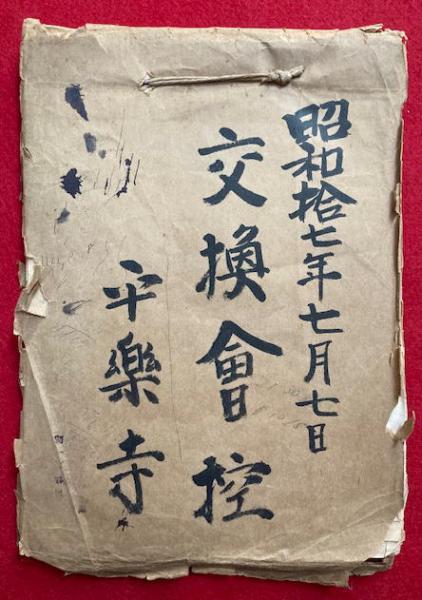 昭和拾七年七月七日
交換會控
平樂寺